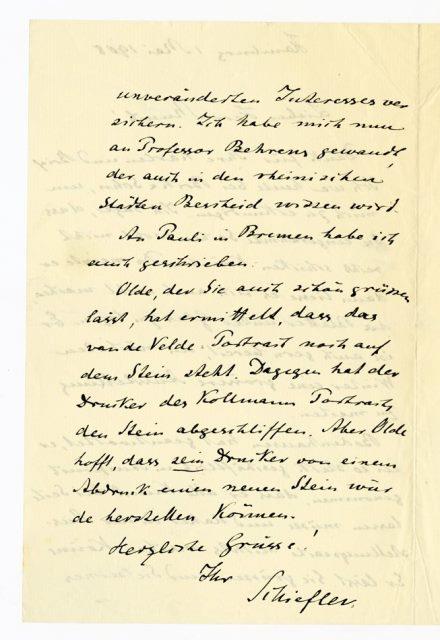 unveränderten Interesses ver
sichern. Ich habe mich nun
an Professor Behrens gewandt,
der auch in den rheinischen
Städten Bescheid wissen wird.
An Pauli in Bremen habe ich
auch geschrieben.
Olde, der Sie auch schön grüssen
lässt, hat ermittelt, dass das
van de Velde Portrait noch auf
dem Stein steht. Dagegen hat der
Drucker des Kollmann Portraits
den Stein abgeschliffen. Aber Olde
hofft, dass sein Drucker von einem
Abdruck einen neuen Stein wür
de herstellen können.
Herzliche Grüsse!
Ihr
Schiefler.